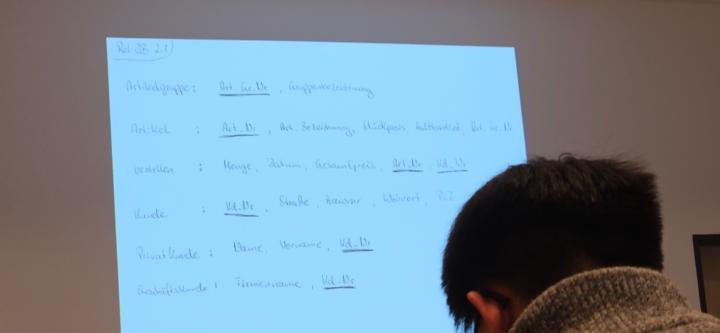 Rel DB 2.1)
Artikelgruppe : Art_Gr_Nr , Gruppenbezeichnung
Artikel : Art_Nr , Art. Bezeichnung, Stückpreis, Art_Gr_Nr
bestellen : Menge, Datum, Gesamtpreis, Art_Nr, Kd_Nr
Kunde : Kd_Nr , Straße , Hausnr , Wohnort , PLZ
Privatkunde : Name, Vorname, Kd_Nr
Geschäftskunde : Firmenname, Kd_Nr